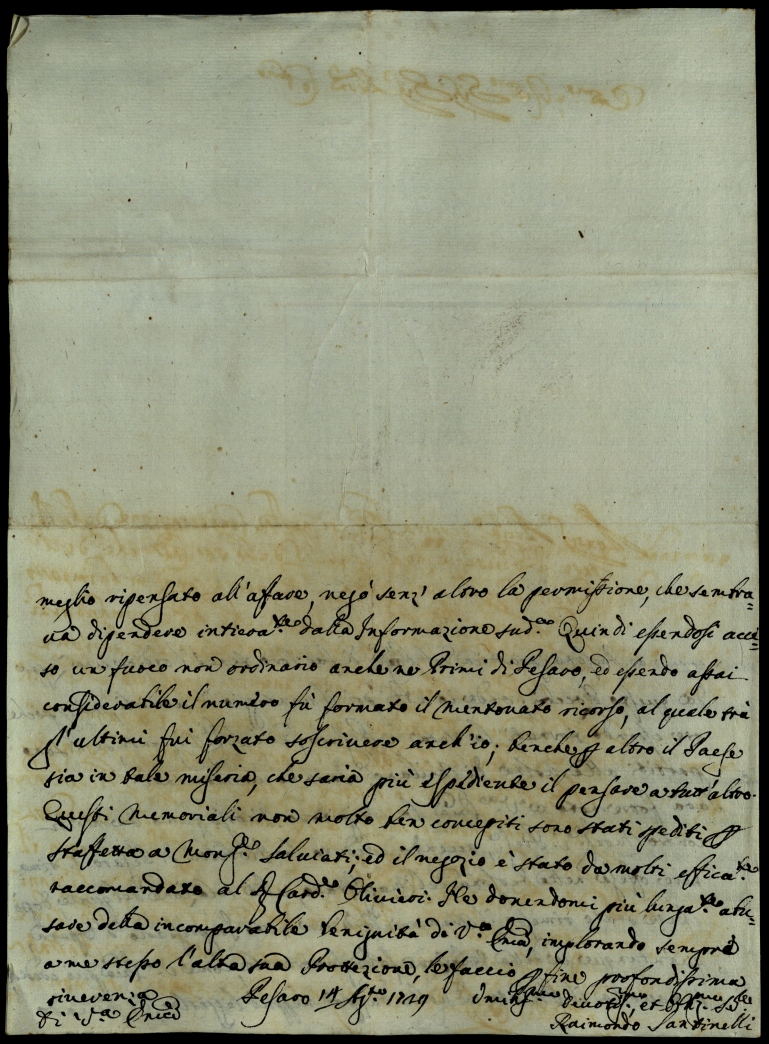 meglio ripensato all'affare, negò senz'altro la permissione, che sembra=
va dipendere intieram.te dalla Informazione sud.a Quindi essendosi acce=
so un fuoco non ordinario anche ne Primi di Pesaro, ed essendo assai
considerabile il numero fù formato il mentovato ricorso, al quale trà
gl'ultimi fui forzato soscrivere anch'io; benche p altro il Paese
sia in tale miseria, che saria più espediente il pensare a tutt'altro.
Questi Memoriali non molto ben concepiti sono stati spediti p
staffetta a Mons.re Salviati; ed il negozio è stato da molti efficam.te
raccomandato al Card.le Olivieri. Ne dovendomi più lungam.te abu=
sare della incomparabile benignità di V.a Em.a, implorando sempre
a me stesso l'alta sua Protezione, le faccio p fine profondissima
riverenza Pesaro 14 Ag.to 1729
Di V.a Em.a Umiliss.mo Devotis.mo, et Obl.mo Se.re
Raimondo Santinelli